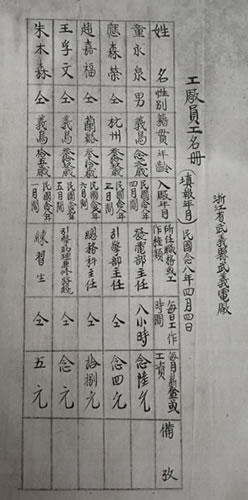 浙江省武義縣武義電廠
工廠員工名冊 填報年月 民國念八年四月四日
姓名 性別 籍貫 年齡 入廠年月 所任職務或工作種類 每日工作時間 每月薪金或工資 備攷
童永泉 男 義烏 歲 民國年四月間 發電部主任 八小時 念陸元
應森榮 仝 杭州 歲 民國年三月間 引擎部主任 仝 念四元
趙嘉福 仝 蘭谿 歲 民國年六月間 總務科主任 仝 拾捌元
王孚文 仝 義烏 歲 民國年五月間 引擎助理兼外綫 仝 念元
朱木森 仝 義烏 拾五歲 民國年一月間 練習生 仝 五元